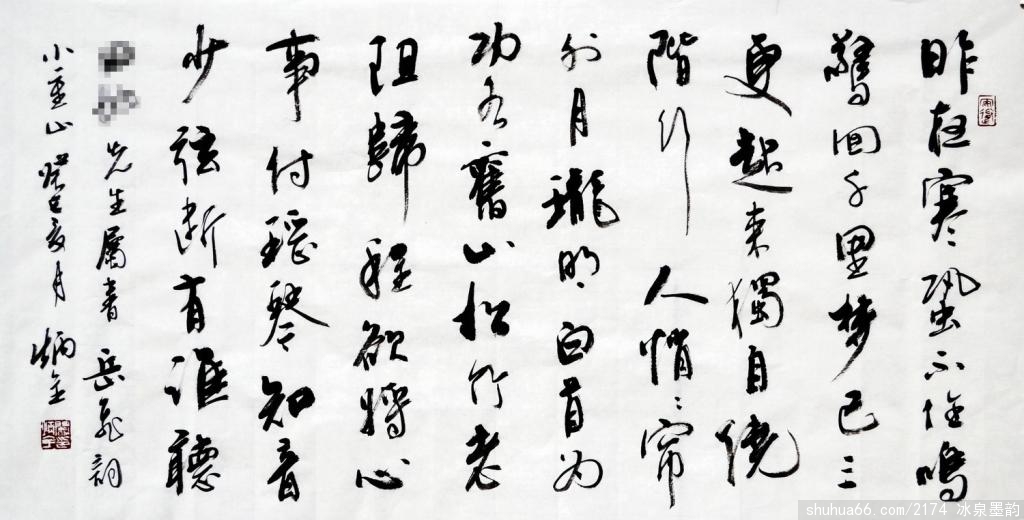 昨夜寒蛩不住鳴
驚回千里梦已三
更起来獨自繞
階行人悄悄帘
外月朧明白首为
功名舊山松竹老
阻歸程欲將心
事付瑶琴知音
少弦断有誰聽
先生屬書 岳飛詞
小重山 癸巳夏月 炳全
shuhua66.com/2174 冰泉墨韵